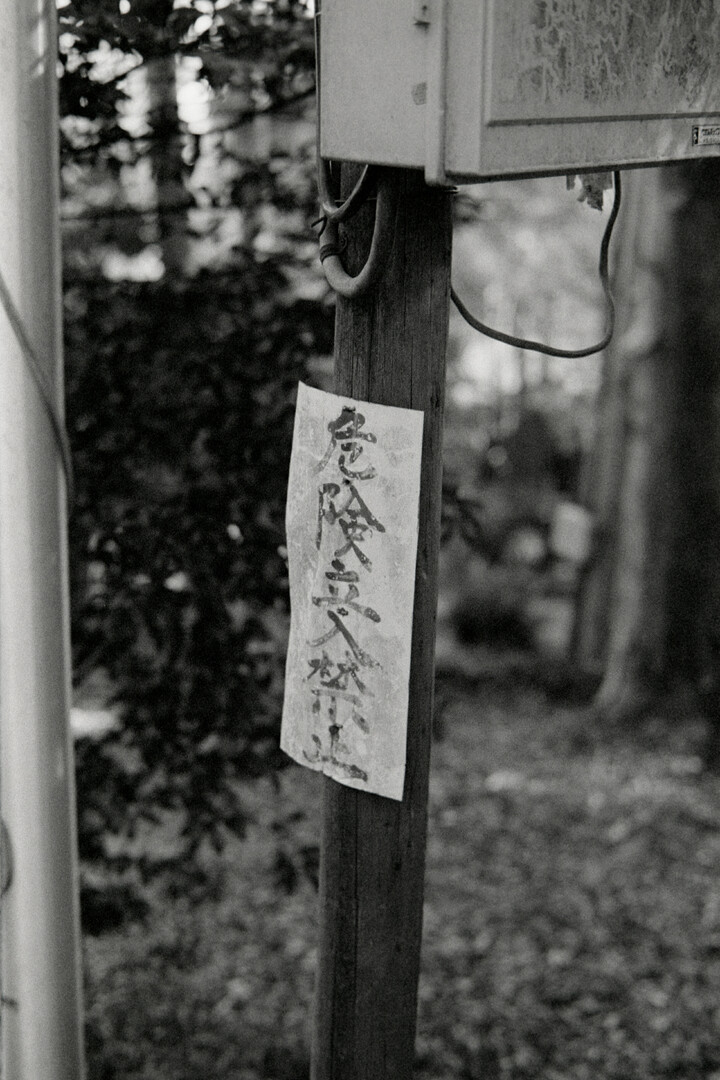 危険立入禁止